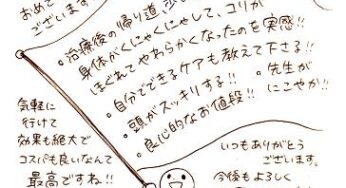 おめで
ございます
・治療後の帰り道、
身体がくにゃくにゃして、コリが
ほぐれてやわらかくなったのを実感!!
・自分でできるケアも教えて下さる!!
・頭がスッキリする!!
・良心的なお値段!!
・先生が
にこやか!!
気軽に
行けて
効果も絶大で
コスパも良いなんて
最高ですね!!
いつもありがとう
ございます。
今後もよろしく